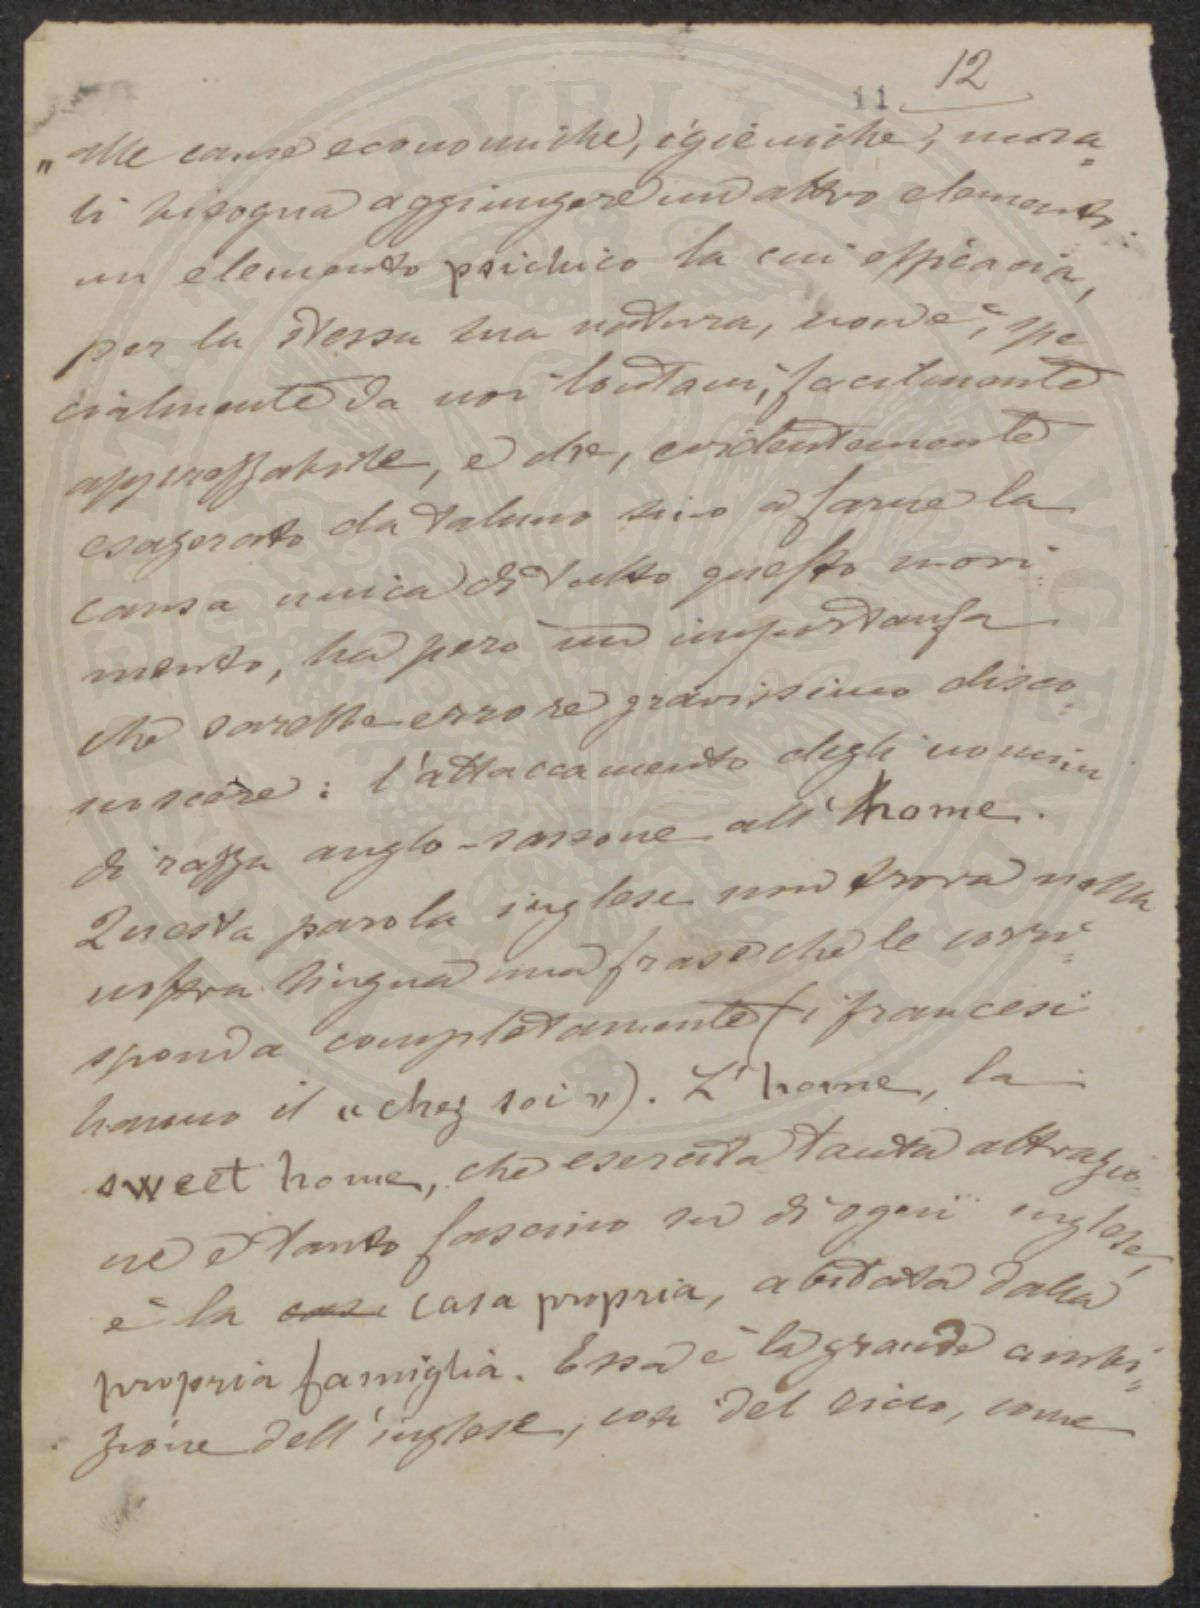 12
11
„ alle cause economiche, igieniche, mora=
li bisogna aggiungere un altro elemento:
un elemento psichico la cui efficacia,
per la stessa sua natura, non è, spe
cialmente da noi lontani, facilmente
apprezzabile, e che, evidentemente
esagerato da taluno sino a farne la
causa unica di tutto questo movi=
mento, ha però un importanza
che sarebbe errore gravissimo disco=
noscere: l'attaccamento degli uomini
di razza anglo-sassone all'home.
Questa parola inglese non trova nella
nostra lingua una frase che le corri=
sponda completamente (i francesi
hanno il « chez soi »). L'home, la
sweet home, che esercita tanta attrazio=
ne e tanto fascino su di ogni inglese,
è la casa casa propria, abitata dalla
propria famiglia. Essa è la grande ambi=
zione dell'inglese, così del ricco, come